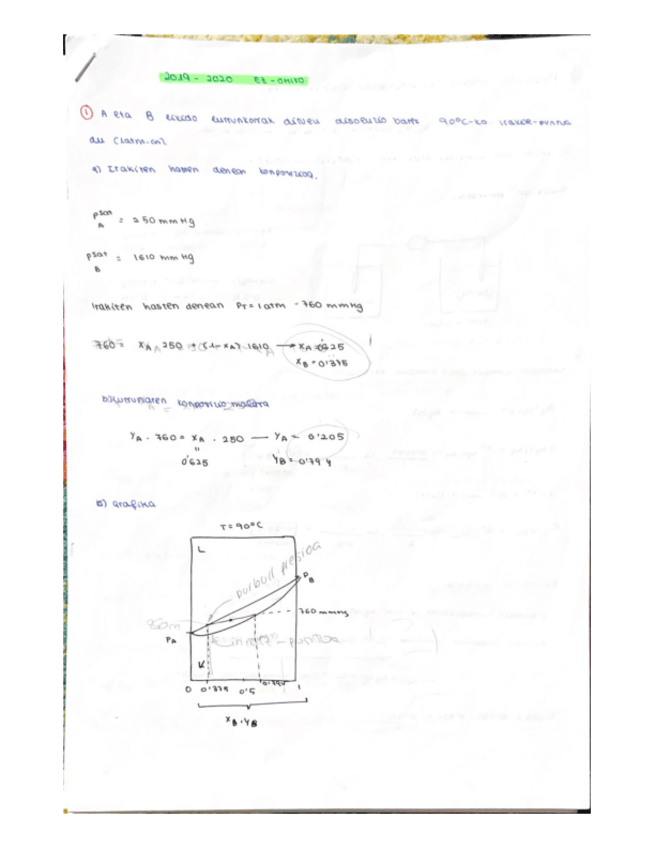 2019 - 2020 EZ-OHIKO
① A eta B likido lurrunkorrak dituen disoluzio batek 90°C-ko irakite-puntua
du (1atm-an).
a) Irakiten hasten denean konposizioa.
P_A^sat = 250 mmHg
P_B^sat = 1610 mmHg
Irakiten hasten denean PT = 1 atm = 760 mmHg
760 = XA 250 + (1 - XA) 1610 → XA = 0'625
XB = 0'375
b) Lurrunaren konposizio molarra
YA . 760 = XA . 250 — YA = 0'205
"
0'625 YB = 0'794
Grafika
T = 90°C
L
burbuil presioa
PB
760 mmHg
PA
0 0'375 0'5 0'794 1
XB, YB